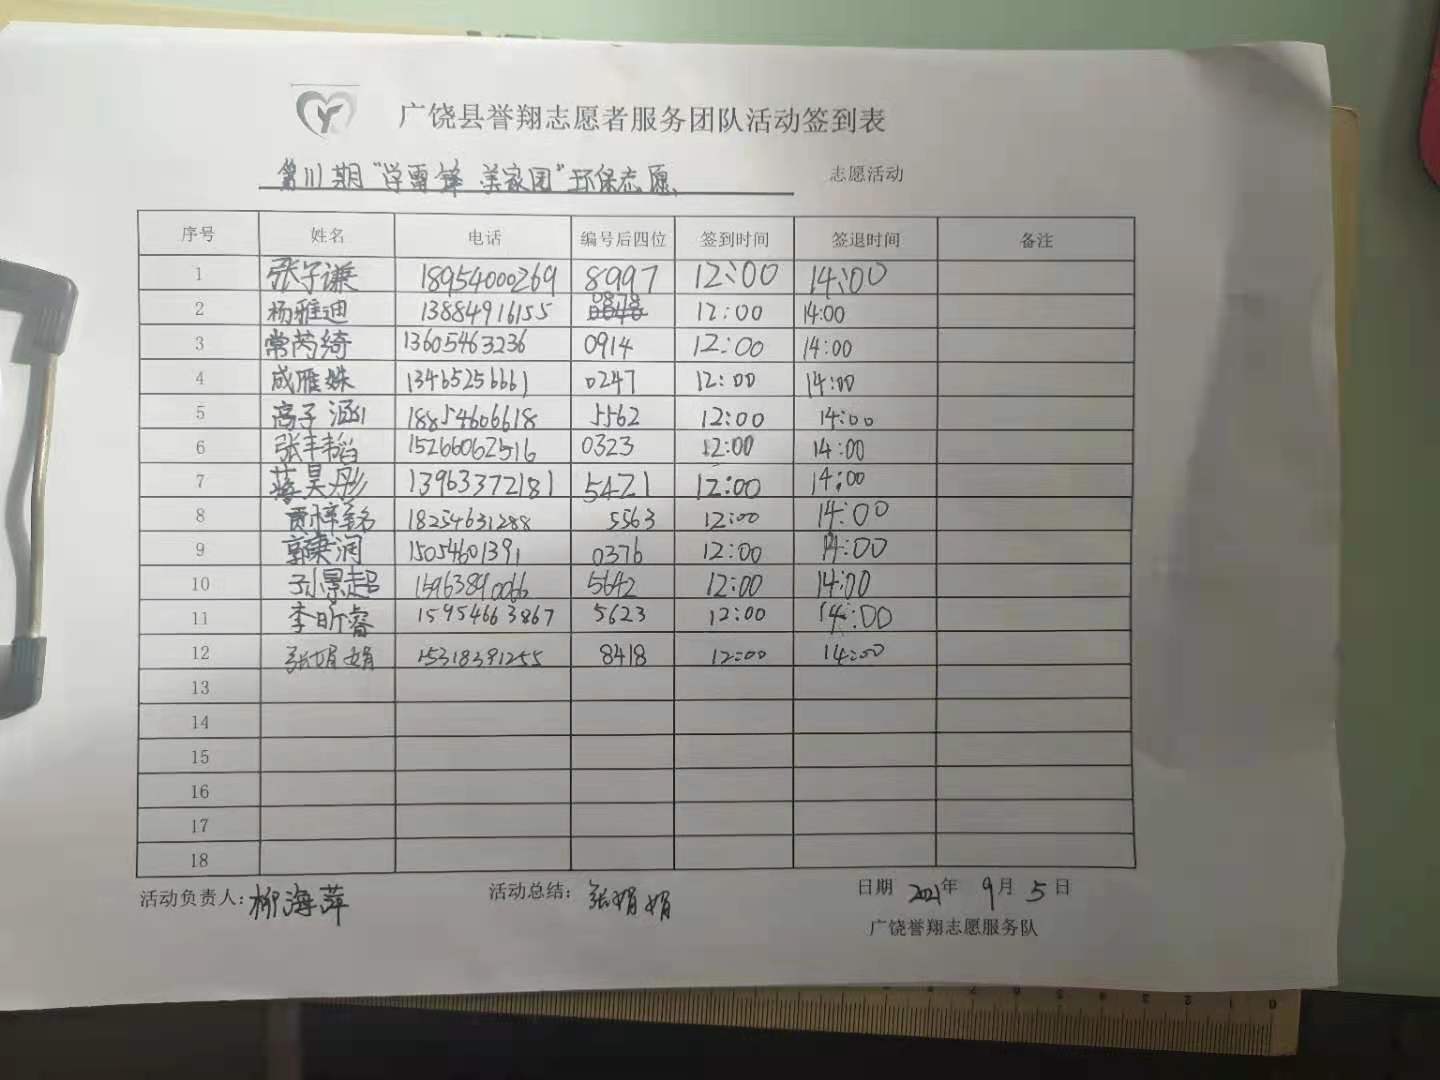 广饶县誉翔志愿者服务团队活动签到表
第111期“学雷锋 美家园”环保志愿 志愿活动
序号 姓名 电话 编号后四位 签到时间 签退时间 备注
1 张子谦 18954000269 8997 12:00 14:00
2 杨雅迪 13884916155 0878 12:00 14:00
3 常芮绮 13605463236 0914 12:00 14:00
4 成雁姝 13465256661 0247 12:00 14:00
5 高子涵 18854606618 5562 12:00 14:00
6 张丰韬 15266062516 0323 12:00 14:00
7 蒋昊彤 13963372181 5421 12:00 14:00
8 贾梓铭 18254631288 5563 12:00 14:00
9 郭康润 15054601391 0376 12:00 14:00
10 孙景超 15963890066 5642 12:00 14:00
11 李昕睿 15954663867 5623 12:00 14:00
12 张娟娟 15318391255 8418 12:00 14:00
13
14
15
16
17
18
活动负责人：柳海萍 活动总结：张娟娟 日期 2021年 9月 5日
广饶誉翔志愿服务队